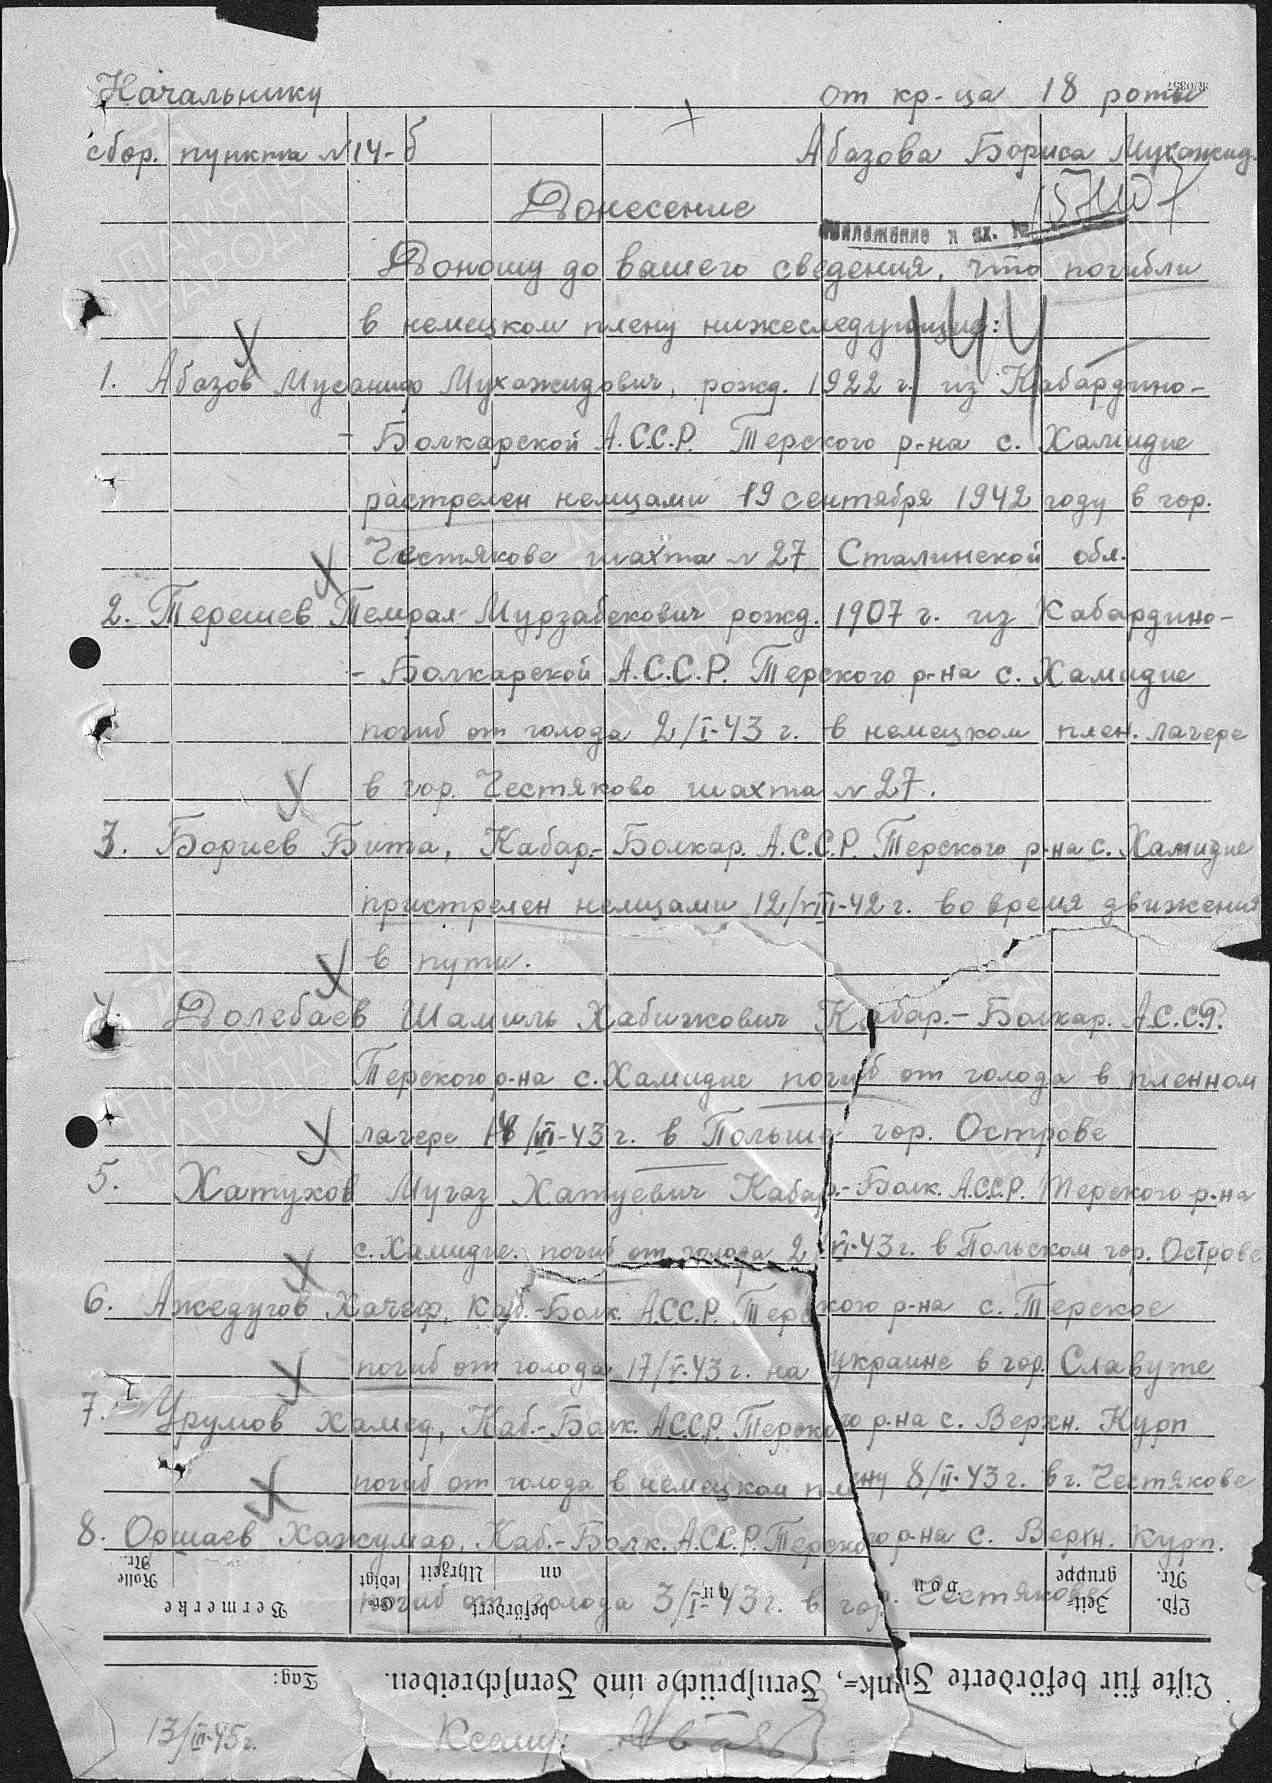 Начальнику от кр-ца 18 роты
сбор. пункта № 14-б Абазова Бориса Мухажид.
Донесение
приложение к вх. №
Доношу до вашего сведения, что погибли
144
в немецком плену нижеследующие:
1. Абазов Мусаниф Мухажидович, рожд. 1922 г. из Кабардино-
- Болкарской А.С.С.Р. Терского р-на с. Хамидие
растрелен немцами 19 сентября 1942 году в гор.
Честякове шахта № 27 Сталинской обл.
2. Терешев Темрал Мурзабекович рожд. 1907 г. из Кабардино-
- Болкарской А.С.С.Р. Терского р-на с. Хамидие
погиб от голода 2/I-43 г. в немецком плен. лагере
в гор. Честяково шахта № 27.
3. Бориев Бита, Кабар.- Болкар. А.С.С.Р. Терского р-на с. Хамидие
пристрелен немцами 12/VIII-42 г. во время движения
в пути.
4. Долебаев Шамиль Хабижкович Кабар.- Болкар. А.С.С.Р.
Терского р-на с. Хамидие погиб от голода в пленном
лагере 18/VI-43 г. в Польше гор. Острове
5. Хатухов Мугаз Хатуевич Кабар.- Болк. А.С.С.Р. Терского р-на
с. Хамидие. погиб от голода 2/VI-43 г. в Польском гор. Острове
6. Ажедугов Хачеф, Каб.-Болк. А.С.С.Р. Терского р-на с. Терское
погиб от голода 17/V-43 г. на Украине в гор. Славуте
7. Урумов Хамед, Каб.-Болк. А.С.С.Р. Терского р-на с. Верхн. Курп
погиб от голода в немецком плену 8/II-43 г. в г. Честякове
8. Оршаев Хажумар, Каб.-Болк. А.С.С.Р. Терского р-на с. Верхн. Курп.
погиб от голода 3/I-43 г. в гор. Честякове
Lfd. Nr. Zeitgruppe von an befördert an Uhrzeit erledigt Bermerke Rolle Nr.
Liste für beförderte Funk-, Fernsprüche und Fernschreiben. Tag:
13/III-45 г. К сему: